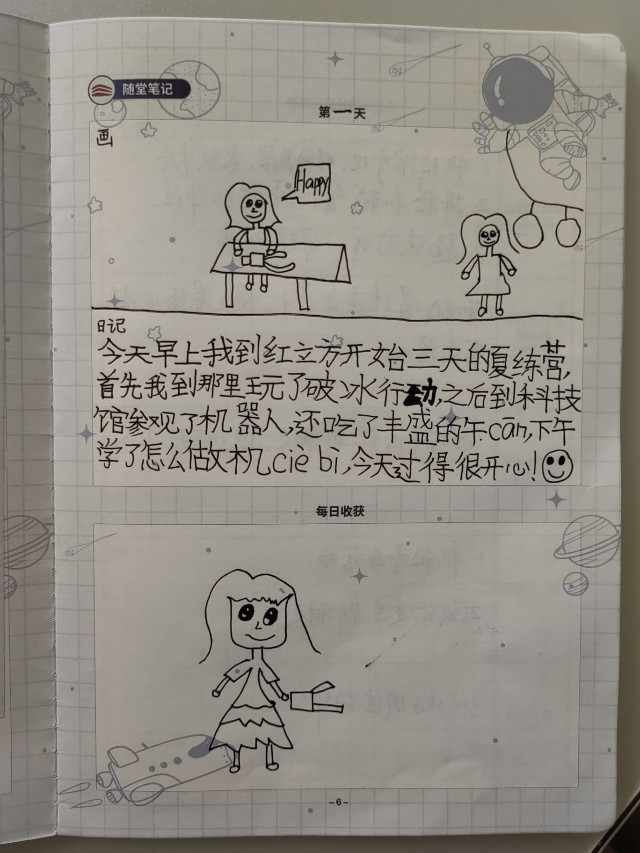 随堂笔记
第一天
画
Happy
日记
今天早上我到红立方开始三天的夏练营,
首先我到那里玩了破冰行动,之后到科技
馆参观了机器人,还吃了丰盛的午cān,下午
学了怎么做机ciè bì,今天过得很开心!
每日收获
-6-